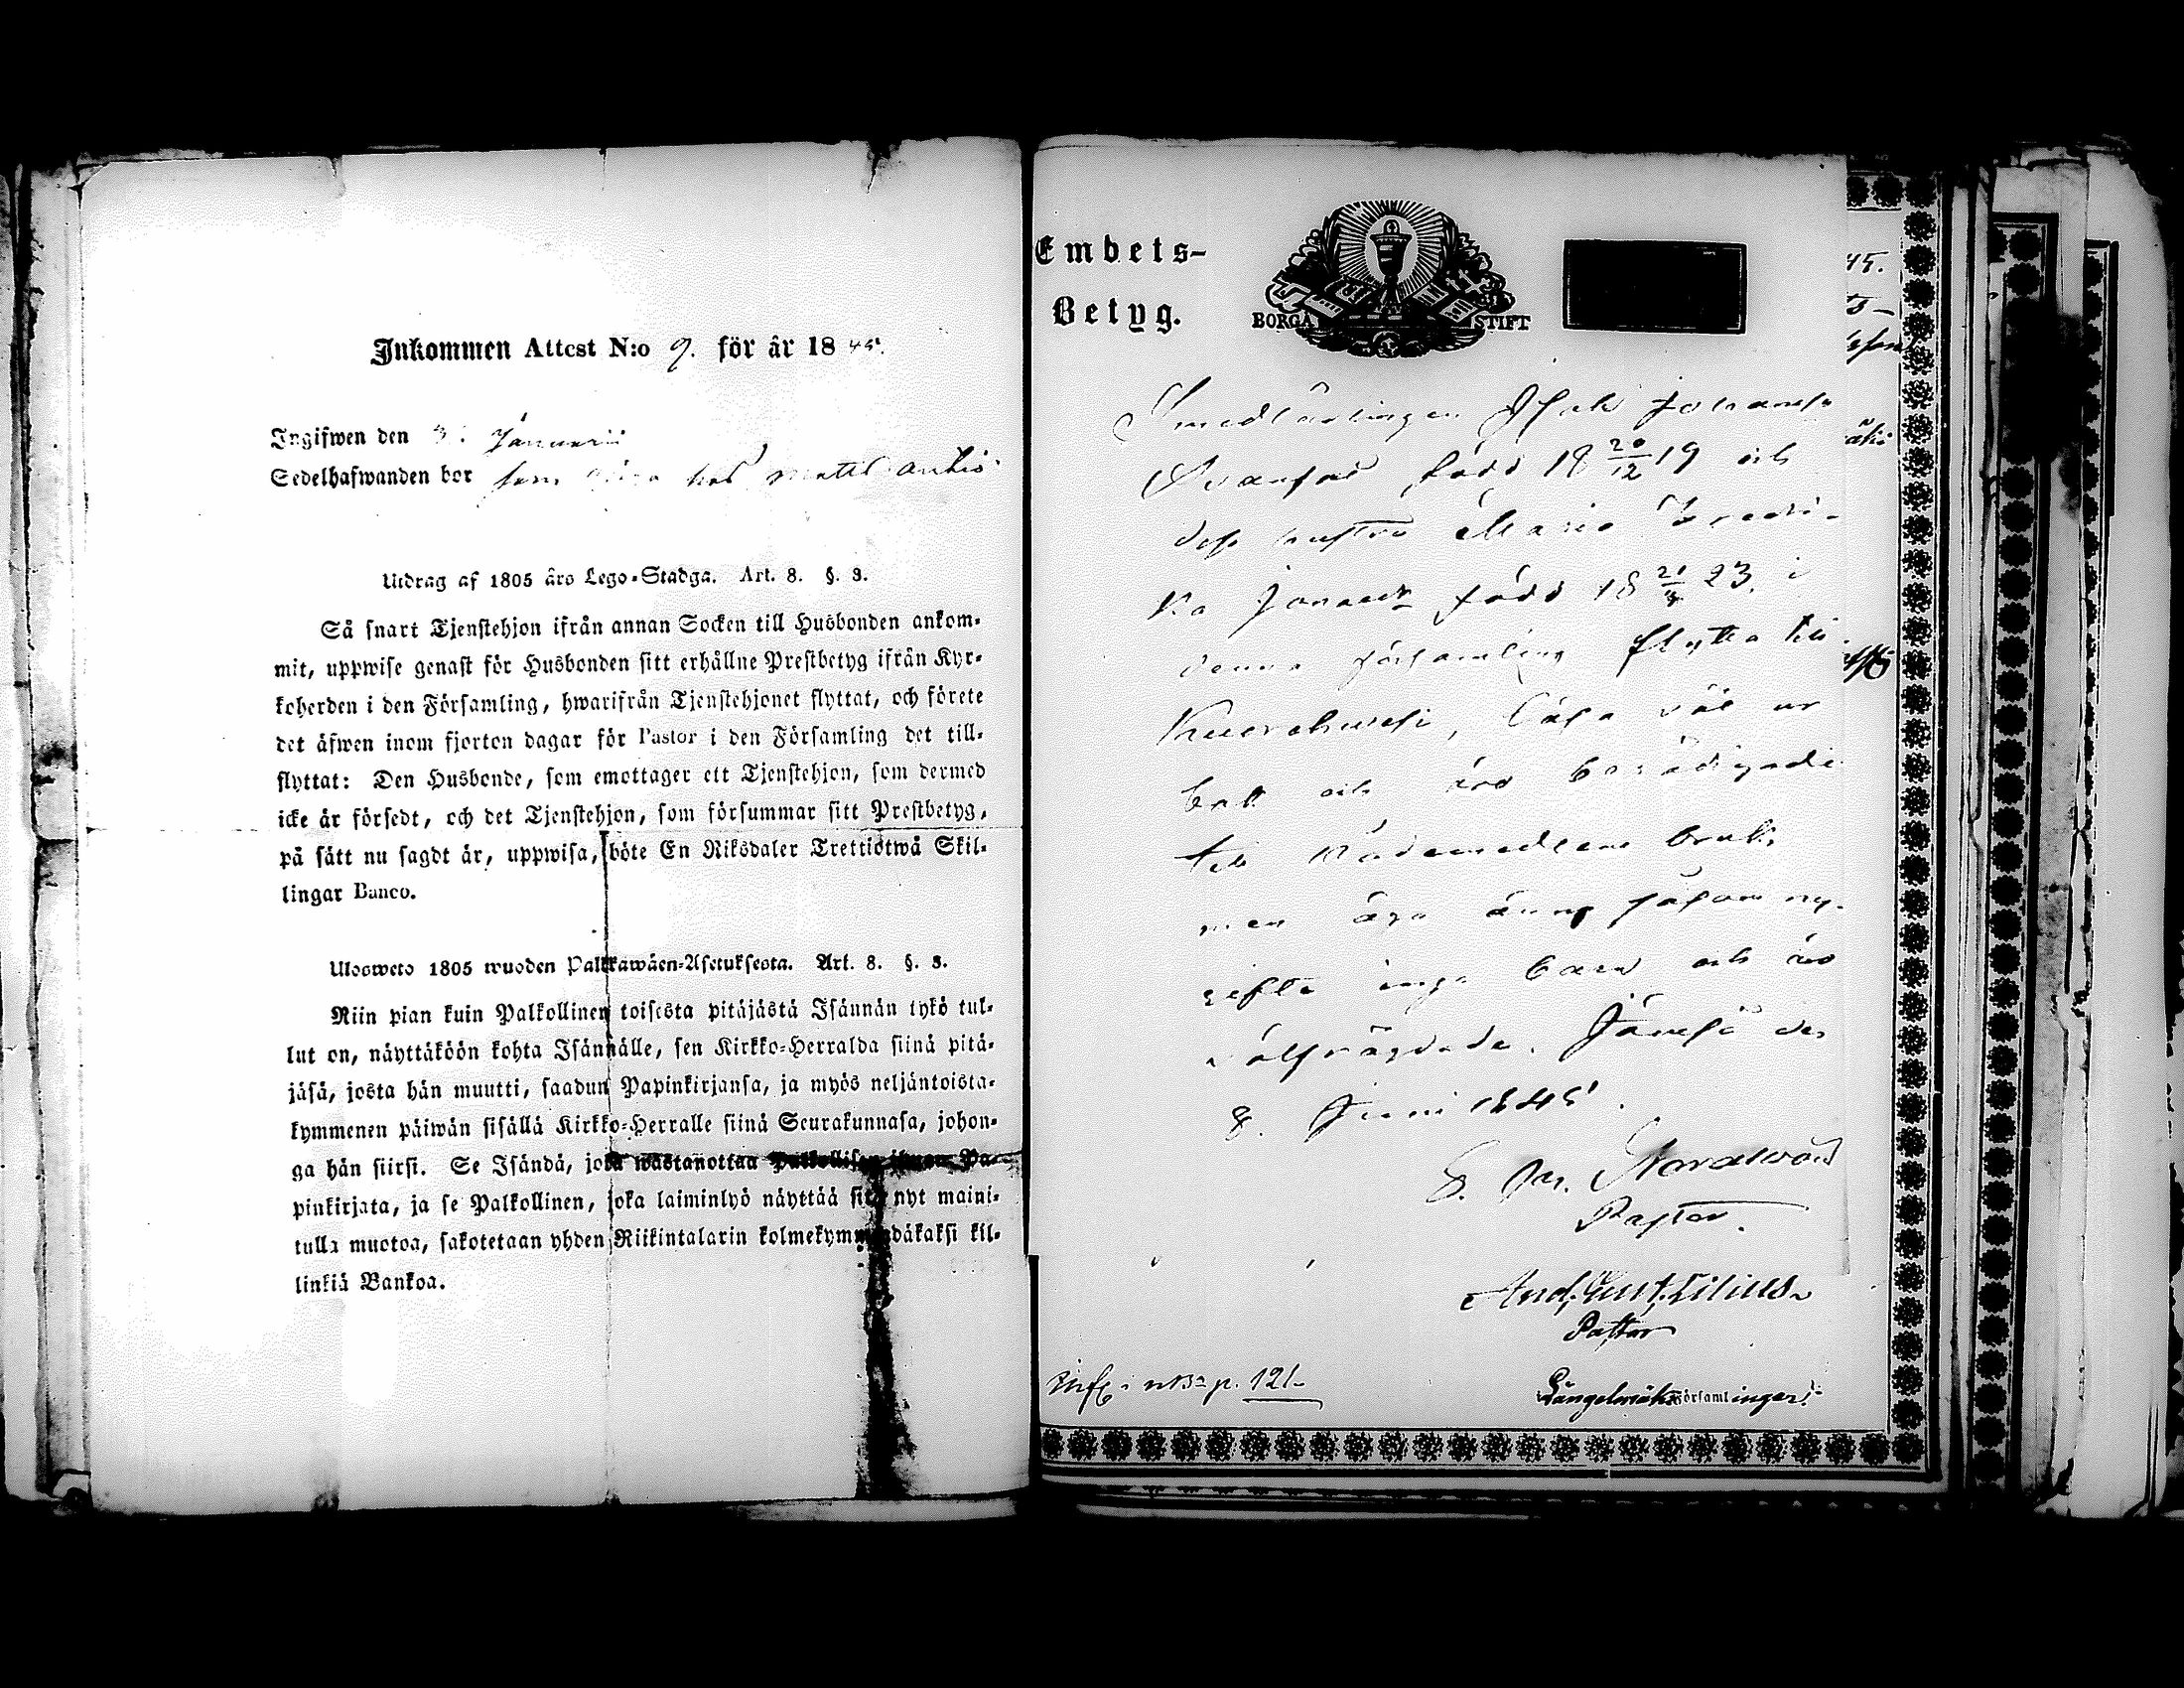 Inkommen Attest N:o 9. för år 1845.
Ingifwen den 3. Januarii
Sedelhafwanden bor som hos Matts Anttis
Utdrag af 1805 års Lego-Stadga. Art. 8. §. 3.
Så snart Tjenstehjon ifrån annan Socken till Husbonden ankom-
mit, uppwise genast för Husbonden sitt erhållne Prestbetyg ifrån Kyr-
koherden i den Församling, hwarifrån Tjenstehjonet flyttat, och förete
det äfwen inom fjorton dagar för Pastor i den Församling det till-
flyttat: Den Husbonde, som emottager ett Tjenstehjon, som dermed
icke är försedt, och det Tjenstehjon, som försummar sitt Prestbetyg,
på sätt nu sagdt är, uppwisa, böte En Riksdaler Trettiotwå Skil-
lingar Banco.
Ulosweto 1805 wuoden Palkkawäen-Asetuksesta. Art. 8. §. 3.
Niin pian kuin Palkollinen toisesta pitäjästä Isännän tykö tul-
lut on, näyttäköön kohta Isännälle, sen Kirkko-Herralda siinä pitä-
jäsä, josta hän muutti, saadun Papinkirjansa, ja myös neljäntoista-
kymmenen päiwän sisällä Kirkko-Herralle siinä Seurakunnasa, johon-
ga hän siirsi. Se Isändä, joka wastanottaa Palkollisen ilman Pa-
pinkirjata, ja se Palkollinen, joka laiminlyö näyttää sitä nyt maini-
tulla muotoa, sakotetaan yhden Riikintalarin kolmekymmendäkaksi kil-
linkiä Bankoa.
Embets-
Betyg.
BORGÅ STIFT
Smedlärlingen Isak Johanss
Svanfal född 18 20/12 19 och
dess hustru Maria Fredri-
ka Jonasdr född 18 23. i
denna församling flytta till
Kuorehwesi, läsa väl ur
bok och äro berättigade
till Nådemedlens bruk,
men äga ännu såsom ny-
gifte inga barn och äro
välfräjdade. Jämsä den
8. Juni 1845
E. Jac. Nordlund
Pastor.
And. Gust. Lilius
Pastor
Infq i NBn p. 121
Längelmäki församlingar.